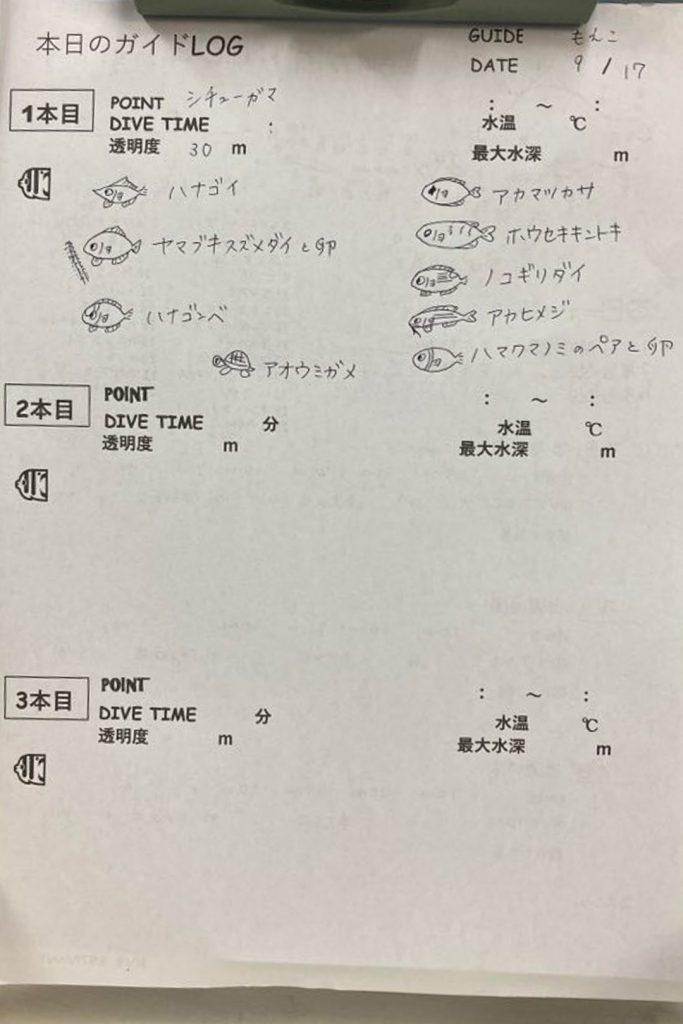 本日のガイドLOG
GUIDE もんこ
DATE 9 / 17
1本目
POINT シチューガマ
DIVE TIME :
: ～ :
透明度 30 m
水温 ℃
最大水深 m
ハナゴイ
アカマツカサ
ヤマブキスズメダイと卵
ホウセキキントキ
ノコギリダイ
ハナゴンベ
アカヒメジ
アオウミガメ
ハマクマノミのペアと卵
2本目
POINT
DIVE TIME 分
: ～ :
透明度 m
水温 ℃
最大水深 m
3本目
POINT
DIVE TIME 分
: ～ :
透明度 m
水温 ℃
最大水深 m